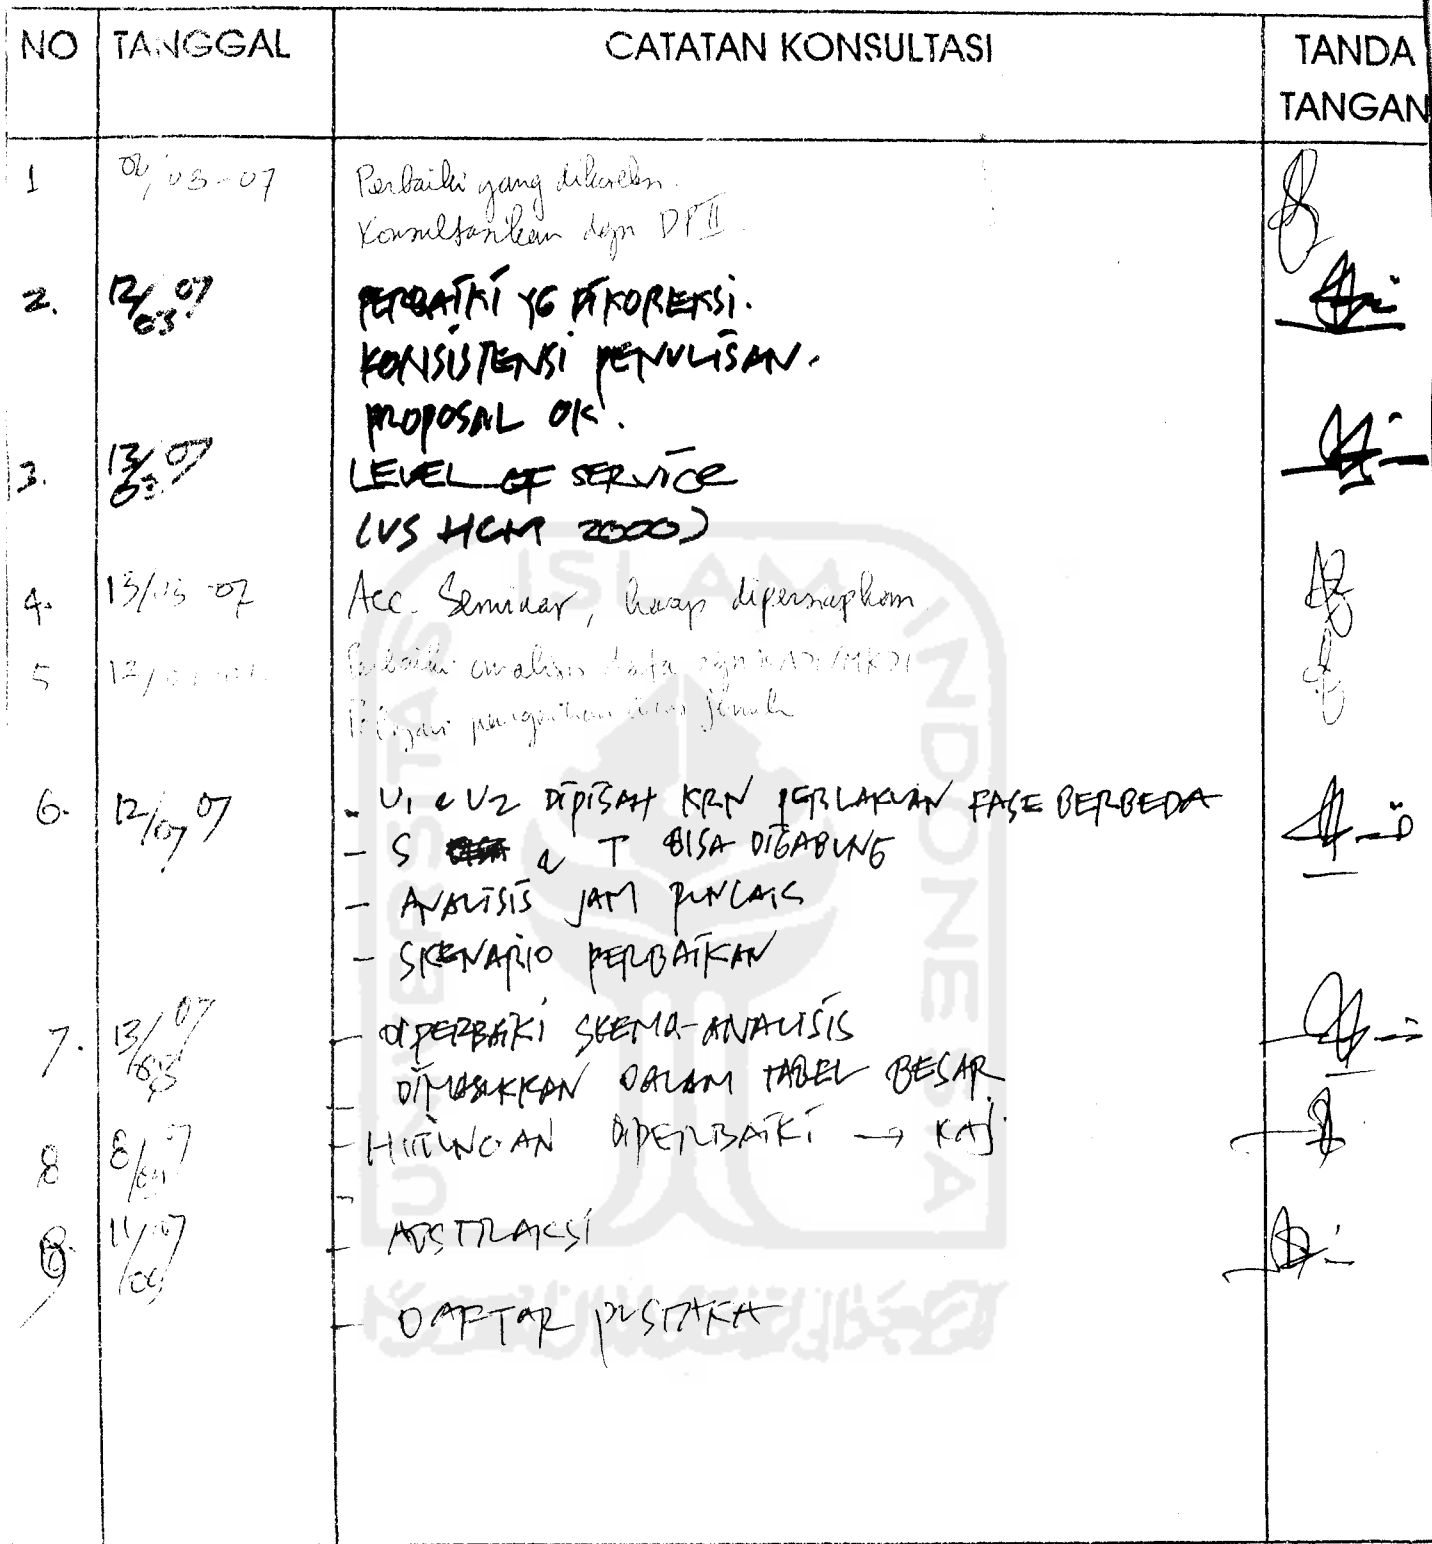 NO TANGGAL CATATAN KONSULTASI TANDA TANGAN
1 03-07 Perbaiki yang dikoreksi.
Konsultasikan dgn DP II.
2. 12/03 07 PERBAIKI YG DIKOREKSI.
KONSISTENSI PENULISAN.
PROPOSAL OK.
3. 13/03 07 LEVEL OF SERVICE
(VS HCM 2000)
4. 13/03-07 Acc. Seminar, harap dipersiapkan
5 12/ Perbaiki analisis data dgn
jenuh
6. 12/07 07 - U1 & U2 DIPISAH KRN PERLAKUAN FASE BERBEDA
- S & T BISA DIGABUNG
- ANALISIS JAM PUNCAK
- SKENARIO PERBAIKAN
7. 13/ 07 - DIPERBAIKI SKEMA-ANALISIS
DIMASUKKAN DALAM TABEL BESAR
8 8/ 07 - HITUNGAN DIPERBAIKI →
9. 11/ 07 - ABSTRAKSI
- DAFTAR PUSTAKA
UNIVERSITAS ISLAM INDONESIA